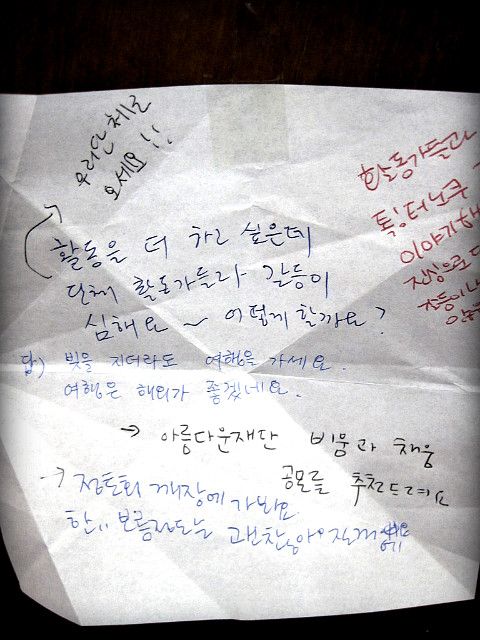 우리단체로
오세요!!
활동을 더 하고 싶은데
단체 활동가들과 갈등이
심해요~ 어떻게 할까요?
답) 빚을 지더라도 여행을 가세요.
여행은 해외가 좋겠네요.
→ 아름다운재단 비움과 채움
공모를 추천드려요
→ 정토회 깨장에 가봐요
한.. 보름정도는 괜찮아요
활동가들과
톡!터노쿠
이야기해
진심으로
갈등이